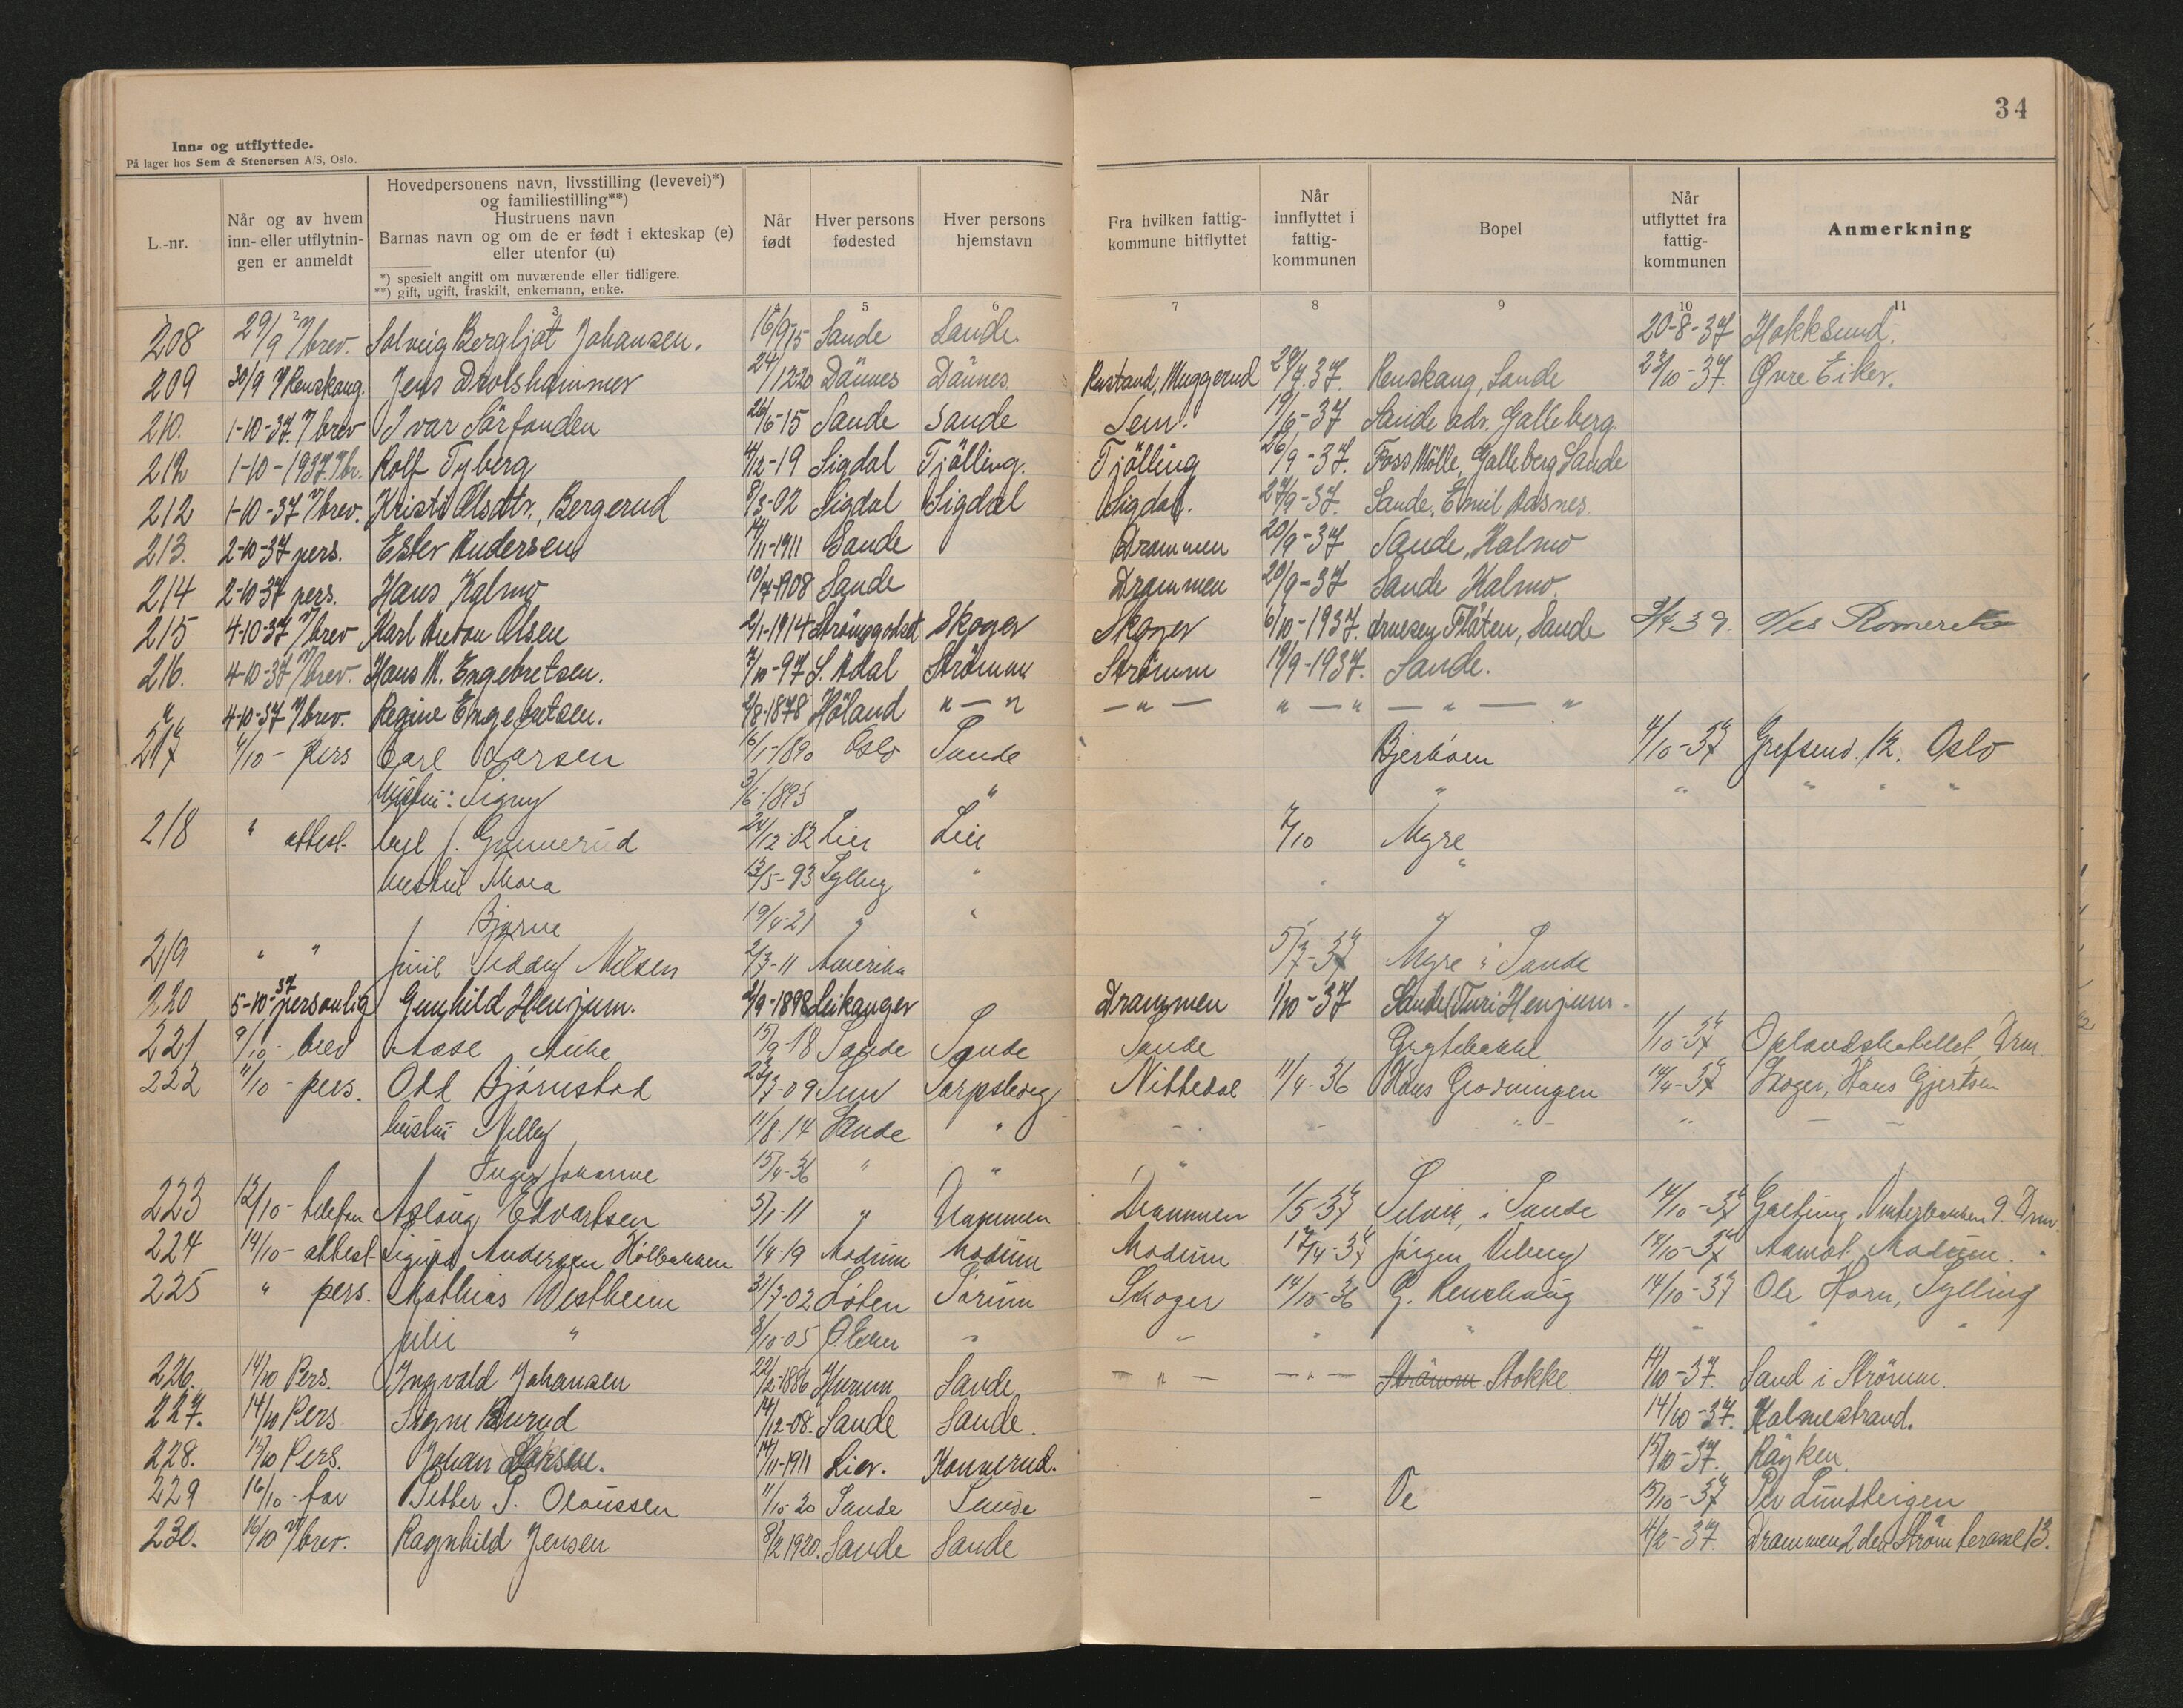 34
Inn- og utflyttede.
På lager hos Sem & Stenersen A/S, Oslo.
L.-nr.
Når og av hvem inn- eller utflytningen er anmeldt
Hovedpersonens navn, livsstilling (levevei)*)
og familiestilling**)
Hustruens navn
Barnas navn og om de er født i ekteskap (e)
eller utenfor (u)
*) spesielt angitt om nuværende eller tidligere.
**) gift, ugift, fraskilt, enkemann, enke.
Når født
Hver persons fødested
Hver persons hjemstavn
Fra hvilken fattigkommune hitflyttet
Når innflyttet i fattigkommunen
Bopel
Når utflyttet fra fattigkommunen
Anmerkning
2 3 5 6 7 8 9 10 11
208 29/9 m/brev. Solveig Bergljot Johansen. 16/9-15 Sande Sande. 20-8-37 Hokksund.
209 30/9 Renskaug. Jens Drolshammer 24/12-20 Dännes Dännes Rustand, Muggerud 29/7.37. Renskaug, Sande 23/10-37. Øvre Eiker.
210. 1-10-37. m/brev Ivar Sörfonden 26/6-15 Sande Sande Sem. 19/6-37 Sande adr. Galleberg.
212 1-10-1937. m/br. Rolf Tyberg 4/12-19 Sigdal Tjölling. Tjölling 26/9-37. Foss Mölle, Galleberg Sande
212 1-10-37 m/brev. Kristi Olsdtr., Bergerud 8/3-02 Sigdal Sigdal Sigdal. 27/9-37. Sande, Emil Aasnes.
213. 2-10-37 pers. Ester Andersen 14/11-1911 Sande Drammen 20/9-37 Sande, Kalmo
214 2-10-37 pers. Hans Kalmo 10/7-1908 Sande Drammen 20/9-37 Sande Kalmo.
215 4-10-37 m/brev Karl Anton Olsen 2/1-1914 Strömgodset Skoger Skoger 6/10-1937. Arnesen Flåten, Sande 3/4 39. Nes Romerike
216. 4-10-37 m/brev. Hans M. Engebretsen. 7/10-97 S. Adal Strömm Strömm 19/9-1937. Sande.
" 4-10-37 m/brev. Regine Engebretsen. 2/8-1878 Höland " — " — " — " — " — " — "
217 4/10 - pers Carl Larsen 16/1-1890 Oslo Sande Bjerkøen 4/10-37 Grefsenv. 12. Oslo
Hustru: Signy 3/6-1895 " " " " " "
218 " attest. Gunnerud 24/12-82 Lier Lier 7/10 Myre
hustru Thora 13/5-93 Sylling " " "
Bjarne 19/4-21 " "
219 " " Teddy Nilsen 2/3-11 Amerika 5/7-37 Myre i Sande
220 5-10-37 personlig Gunhild Henjum. 2/9-1898 Leikanger Drammen 1/10-37 Sande Turi Henjum.
221 9/10 - brev Aase Anke 15/9-18 Sande Sande Sande Grytebakke 1/10-37 Oplandshotellet, Drm.
222 11/10 - pers. Odd Bjørnstad 23/7-09 Sem Sarpsborg Nittedal 11/4-36 Hans Grodningen 14/4-37 Skoger, Hans Gjertsen
hustru Nelly 11/8-14 Sande " - - " - " - -
Inger Johanne 15/4-36 " " "
223 12/10 - telefon Aslaug Edvartsen 5/1-11 " Drammen Drammen 1/5-37 Selvik, i Sande 14/10-37 Vinterbakken 9. Drm.
224 14/10 - attest Sigurd Andersen Hólbakken 1/4-19 Modum Modum Modum 14/4-37 Jörgen Viberg 14/10-37 Aamot. Modum.
225 " pers. Mathias Vestheim 31/7-02 Löten Sörum Skoger 14/10-36 G. Renskaug 14/10-37 Ole Horn, Sylling
Julie " 3/10-05 Ø. Eiker " " " " " "
226. 14/10 Pers. Ingvald Johansen 22/2-1886 Hurum Sande — " — — " — Strömm Stokke 14/10-37. Sand i Strömm.
227. 14/10 Pers Signe Burud 14/12-08. Sande Sande. 14/10-37. Holmestrand.
228. 15/10 Pers. Johan Larsen. 14/11-1911 Lier. Konnerud. 15/10-37. Röyken.
229 16/10 - far Petter S. Olaussen 11/10-20 Sande Sande - Ve 15/10-37 Per Lundteigen
230. 16/10 m/brev. Ragnhild Jensen 8/2 1920. Sande Sande 4/2-37. Drammen 2 den Strøm terasse 13.